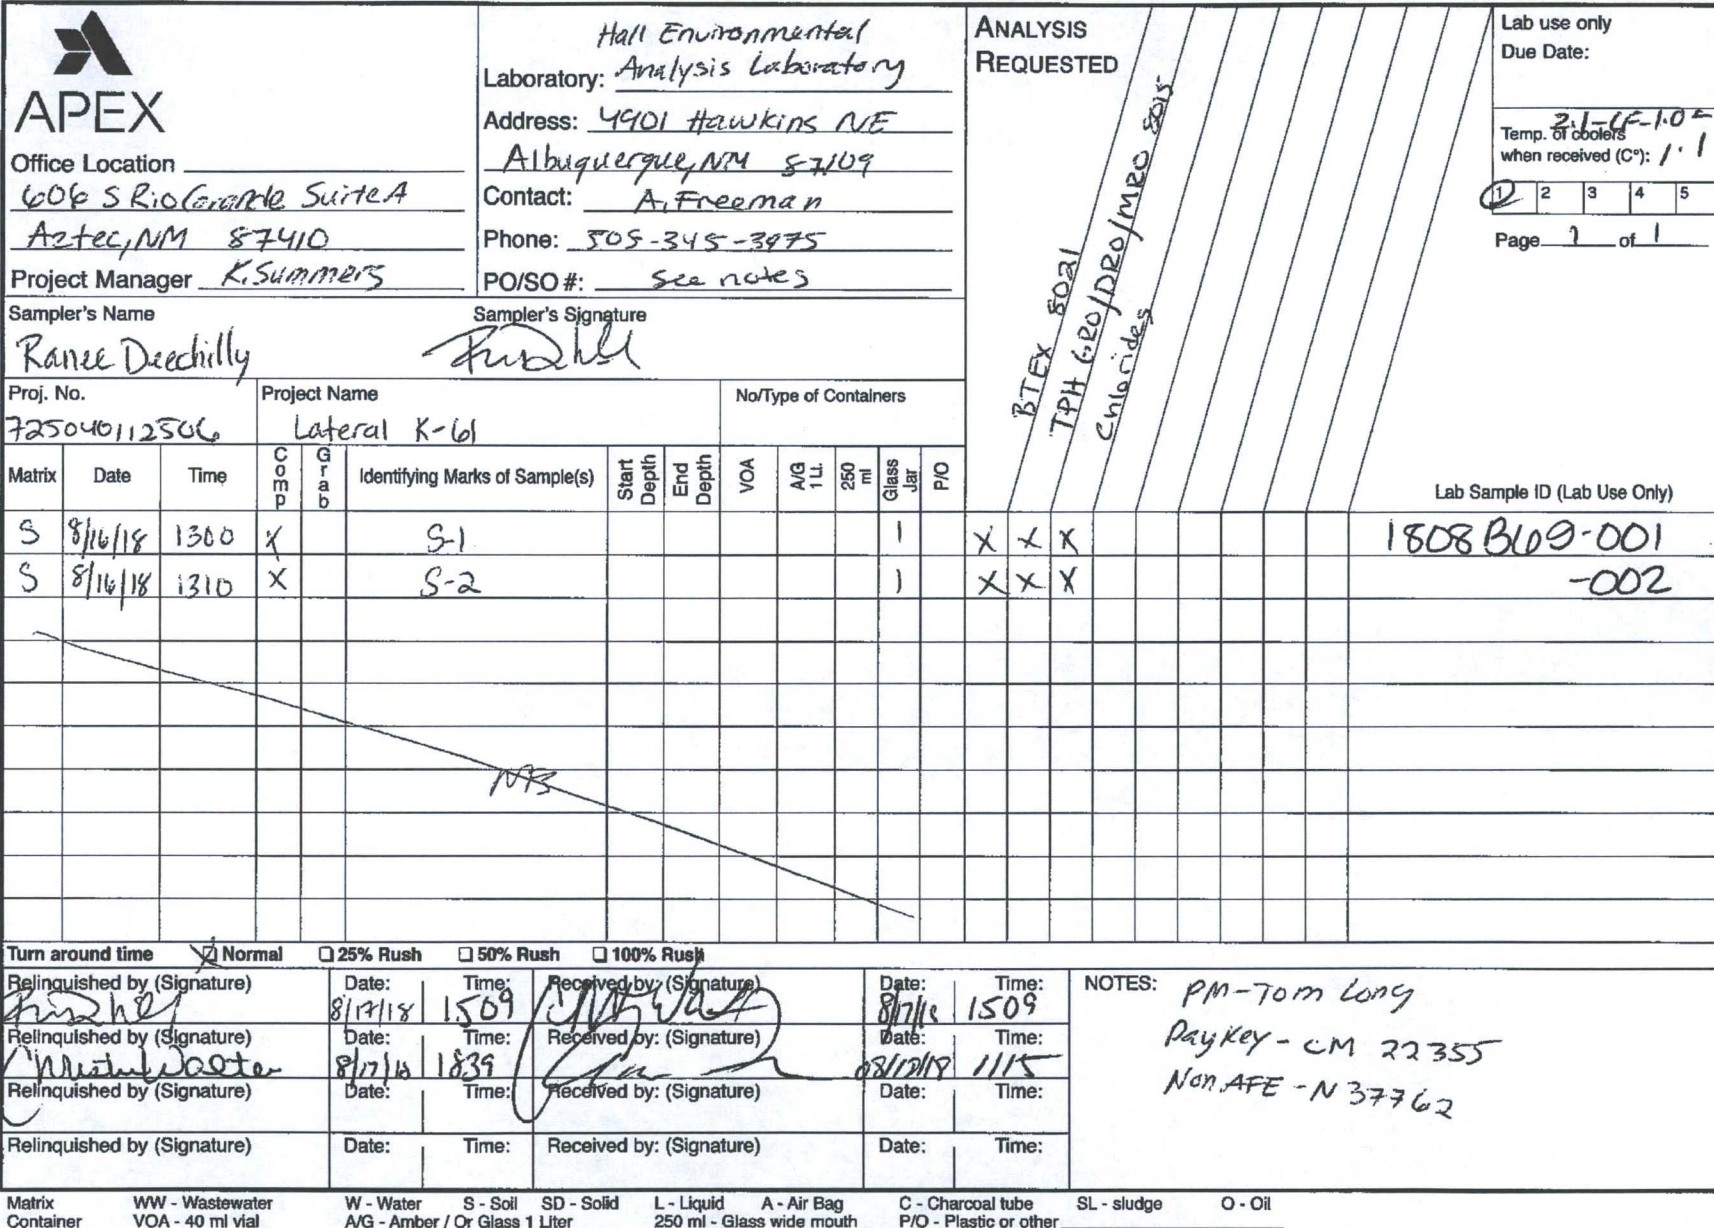 APEX
Office Location
606 S Rio Grande Suite A
Aztec, NM 87410
Project Manager K. Summers
Hall Environmental
Laboratory: Analysis Laboratory
Address: 4901 Hawkins NE
Albuquerque, NM 87109
Contact: A. Freeman
Phone: 505-345-3975
PO/SO #: see notes
ANALYSIS
REQUESTED
BTEX 8021
TPH GRO/DRO/MRO 8015
Chlorides
Lab use only
Due Date:
2.1-CF-1.0=
Temp. of coolers
when received (C°): 1.1
1 2 3 4 5
Page 1 of 1
Sampler's Name Sampler's Signature
Ranee Deechilly
Proj. No. Project Name No/Type of Containers
725040112506 Lateral K-61
Matrix Date Time Comp Grab Identifying Marks of Sample(s) Start Depth End Depth VOA A/G 1 Lt. 250 ml Glass Jar P/O Lab Sample ID (Lab Use Only)
S 8/16/18 1300 X S-1 1 X X X 1808B69-001
S 8/16/18 1310 X S-2 1 X X X -002
NFS
Turn around time Normal 25% Rush 50% Rush 100% Rush
Relinquished by (Signature) Date: Time: Received by: (Signature) Date: Time:
8/17/18 1509 8/17/18 1509
Relinquished by (Signature) Date: Time: Received by: (Signature) Date: Time:
8/17/18 1839 1115
Relinquished by (Signature) Date: Time: Received by: (Signature) Date: Time:
Relinquished by (Signature) Date: Time: Received by: (Signature) Date: Time:
NOTES: PM-Tom Long
PayKey - CM 22355
Non AFE - N 37762
Matrix WW - Wastewater W - Water S - Soil SD - Solid L - Liquid A - Air Bag C - Charcoal tube SL - sludge O - Oil
Container VOA - 40 ml vial A/G - Amber / Or Glass 1 Liter 250 ml - Glass wide mouth P/O - Plastic or other